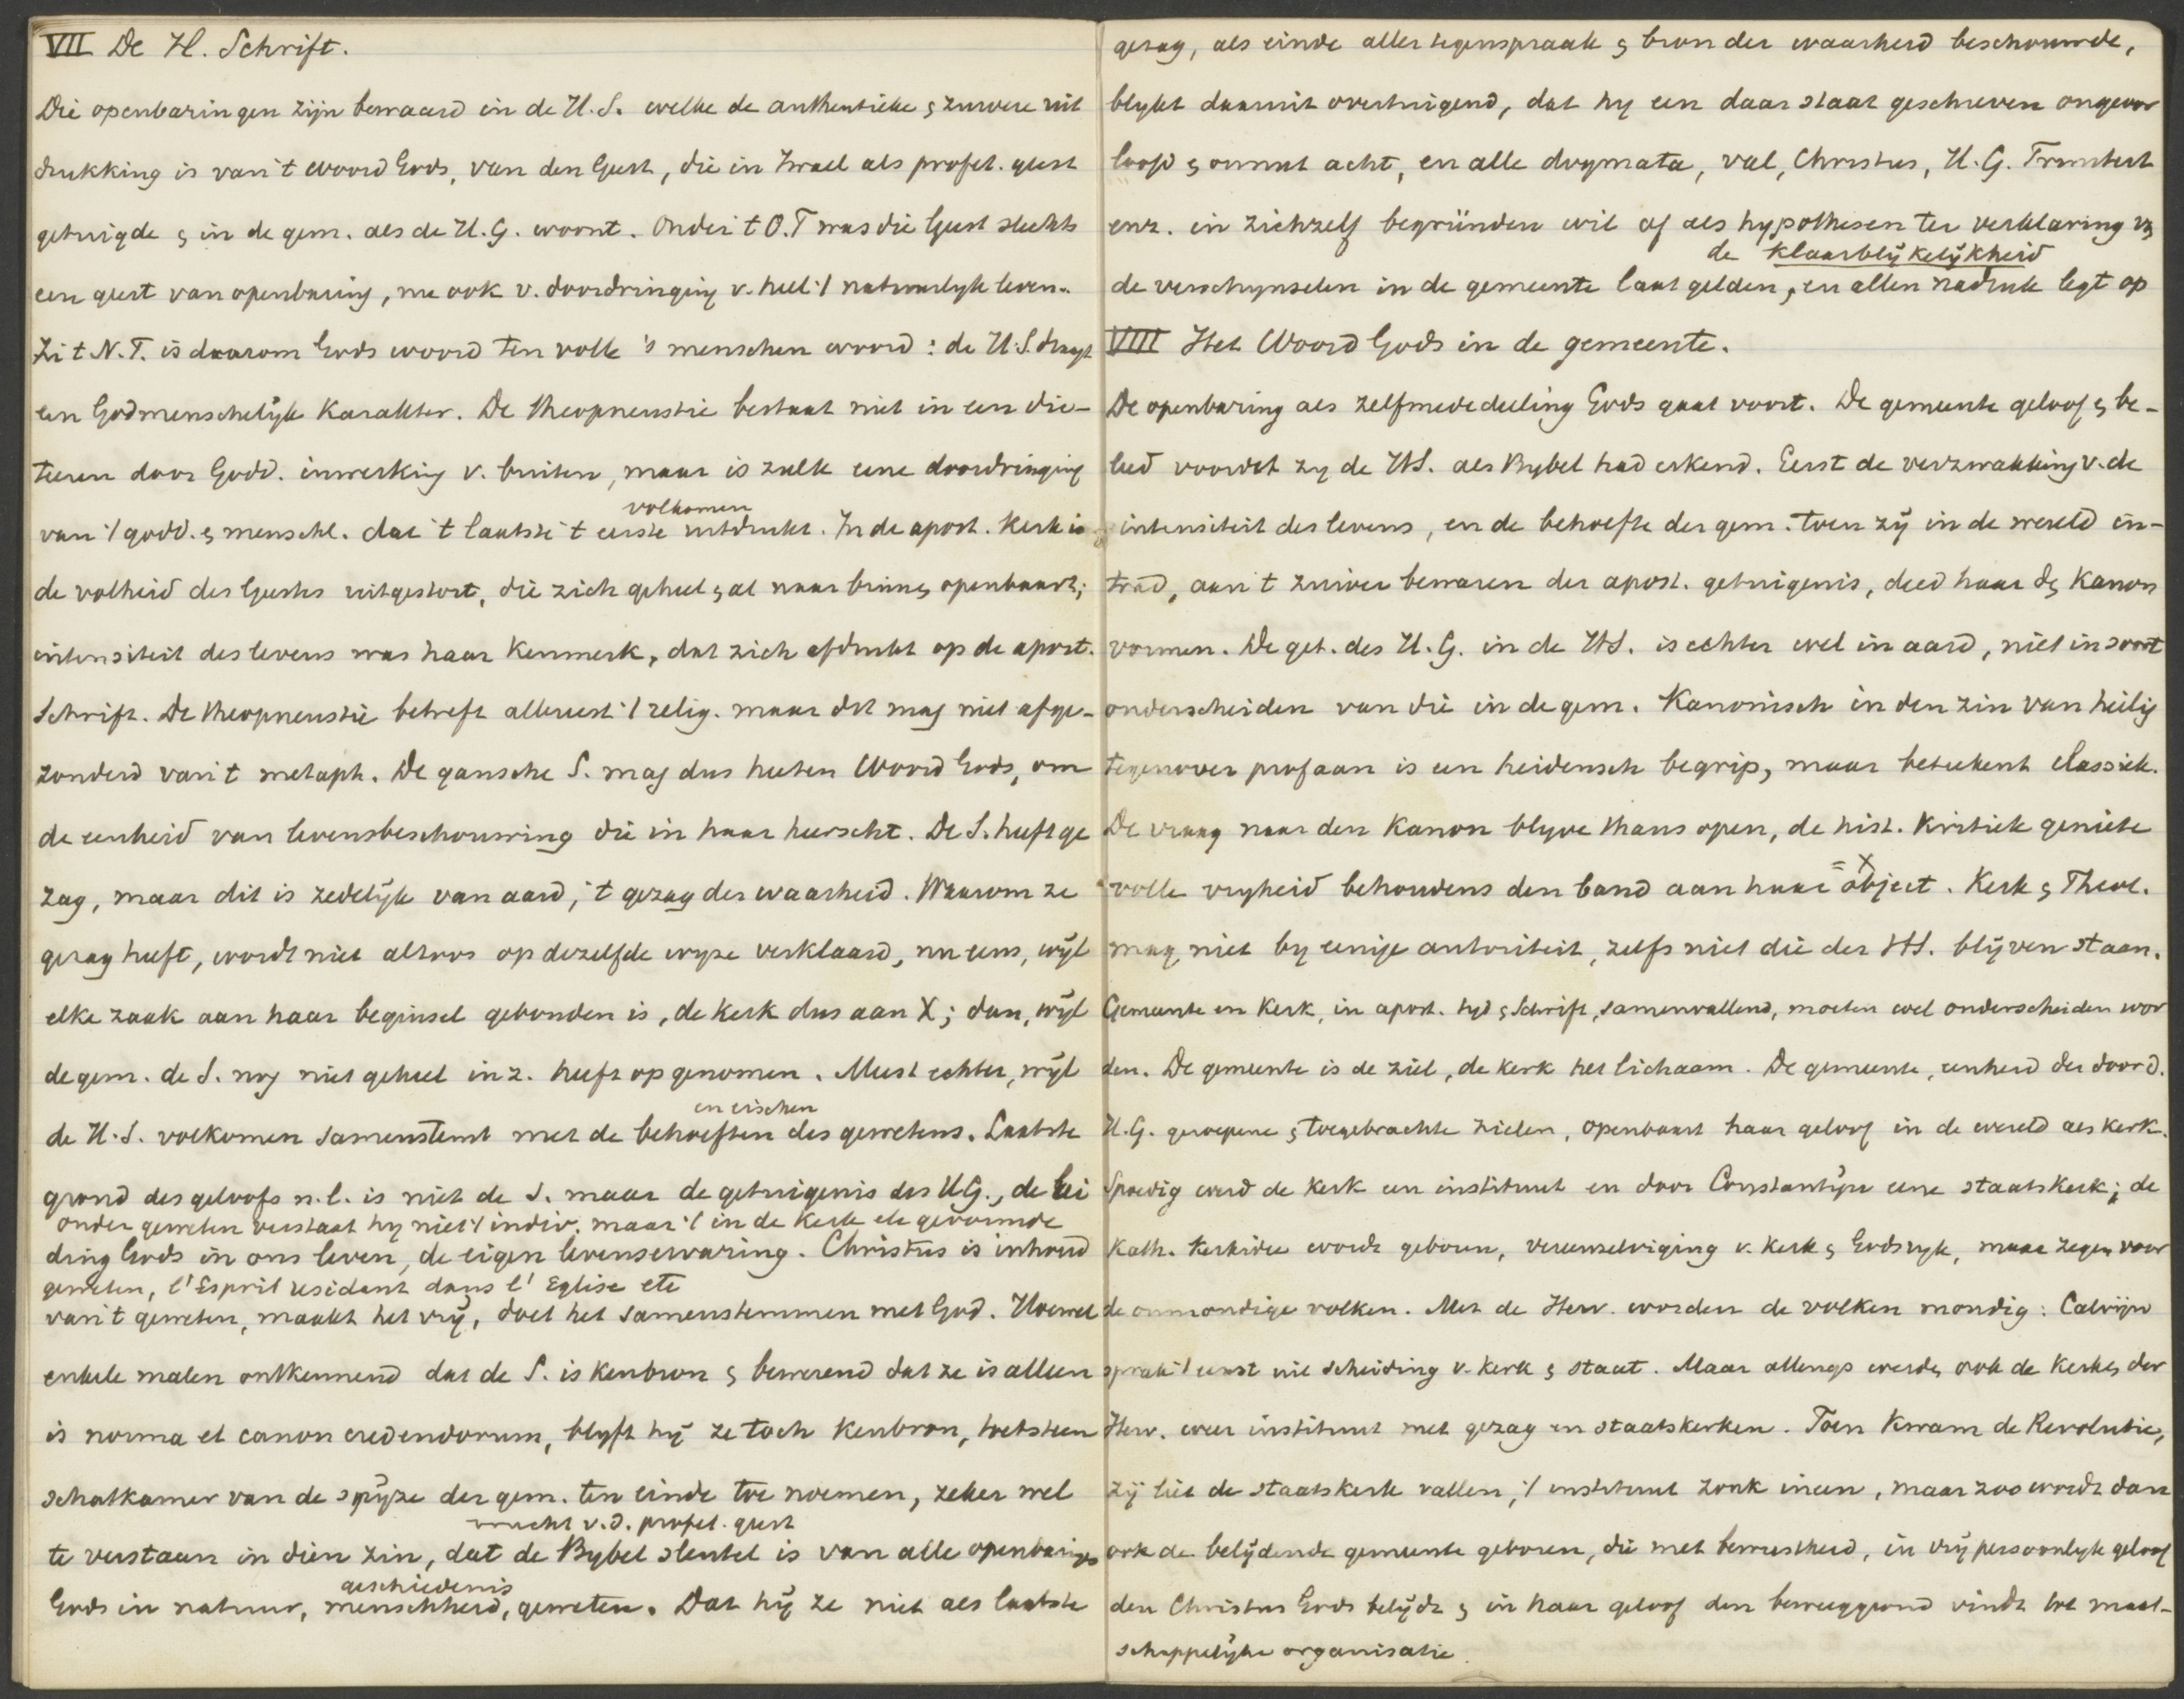 VII De H. Schrift.
Die openbaringen zijn bewaard in de H.S. welke de authentieke & zuivere uit
drukking is van 't woord Gods, van den Geest, die in Israel als profet. geest
getuigde & in de gem. als de H.G. woont. Onder 't O.T was die Geest slechts
een geest van openbaring, nu ook v. doordringing v. heel 't natuurlyk leven.
In 't N.T. is daarom Gods woord ten volle 's menschen woord: de H.S. draagt
een Godmenschelijk karakter. De theopneustie bestaat niet in een dic-
teeren door Godd. inwerking v. buiten, maar is zulk eene doordringing
van 't godd. & menschl. dat 't laatste 't eerste volkomen uitdrukt. In de apost. Kerk is
de volheid des Geestes uitgestort, die zich geheel & al naar binnen openbaart;
intensiteit des levens was haar kenmerk, dat zich afdrukt op de apost.
Schrift. De theopneustie betreft allereerst 't relig. maar dit mag niet afge-
zonderd van 't metaph. De gansche S. mag dus heeten Woord Gods, om
de eenheid van levensbeschouwing die in haar heerscht. De S. heeft ge
zag, maar dit is zedelijk van aard, 't gezag der waarheid. Waarom ze
gezag heeft, wordt niet altoos op dezelfde wyze verklaard, nu eens, wijl
elke zaak aan haar beginsel gebonden is, de kerk dus aan X; dan, wijl
de gem. de S. nog niet geheel in z. heeft opgenomen. Meest echter, wijl
de H.S. volkomen samenstemt met de behoeften en eischen des gewetens. Laatste
grond des geloofs n.l. is niet de S. maar de getuigenis des H.G., de lei
onder geweten verstaat hy niet 't indiv. maar 't in de kerk etc gevormde
ding Gods in ons leven, de eigen levenservaring. Christus is inhoud
geweten, l'Esprit residant dans l'Eglise etc
van 't geweten, maakt het vrij, doet het samenstemmen met God. Hoewel
enkele malen ontkennend dat de S. is kenbron & bewerend dat ze is alleen
is norma et canon credendorum, blyft hij ze toch kenbron, toetssteen
schatkamer van de spijze der gem. ten einde toe noemen, zeker wel
te verstaan in dien zin, dat de Bybel vrucht v.d. profet. geest sleutel is van alle openbarings
Gods in natuur, menschheid, geschiedenis geweten. Dat hij ze niet als laatste
gezag, als einde aller tegenspraak & bron der waarheid beschouwde,
blykt daaruit overtuigend, dat hy een daar staat geschreven ongeoor
loofd & onnut acht, en alle dogmata, val, Christus, H.G. Triniteit
enz. in zichzelf begründen wil of als hypothesen ter verklaring van
de verschynselen in de gemeente laat gelden, en allen nadruk legt op de klaarblijkelijkheid
VIII Het Woord Gods in de gemeente.
De openbaring als zelfmededeeling Gods gaat voort. De gemeente geloof & be-
leed voordat zy de HS. als Bybel had erkend. Eerst de verzwakking v. de
intensiteit des levens, en de behoefte der gem. toen zij in de wereld in-
trad, aan 't zuiver bewaren der apost. getuigenis, deed haar den Kanon
vormen. De get. des H.G. in de HS. is echter wel in aard, niet in soort
onderscheiden van die in de gem. Kanonisch in den zin van heilig
tegenover profaan is een heidensch begrip, maar beteekent classiek.
De vraag naar den Kanon blyve thans open, de hist. Kritiek geniete
volle vryheid behoudens den band aan haar object = X. Kerk & Theol.
mag niet by eenige autoriteit, zelfs niet die der HS. blijven staan.
Gemeente en Kerk, in apost. tyd & Schrift, samenvallend, moeten wel onderscheiden wor
den. De gemeente is de ziel, de kerk het lichaam. De gemeente, eenheid der door d.
H.G. geroepene & toegebrachte zielen, openbaart haar geloof in de wereld als kerk.
Spoedig werd de kerk een instituut en door Constantijn eene staatskerk; de
Kath. kerkidee wordt geboren, vereenzelviging v. kerk & Godsryk, maar zegen voor
de onmondige volken. Met de Herv. worden de volken mondig: Calvijn
sprak 't eerst uit scheiding v. kerk & staat. Maar allengs werden ook de kerken der
Herv. weer instituut met gezag en staatskerken. Toen kwam de Revolutie,
zij liet de staatskerk vallen, 't instituut zonk ineen, maar zoo wordt dan
ook de belijdende gemeente geboren, die met bewustheid, in vrij persoonlyk geloof
den Christus Gods belijdt & in haar geloof den beweeggrond vindt tot maat-
schappelijke organisatie.